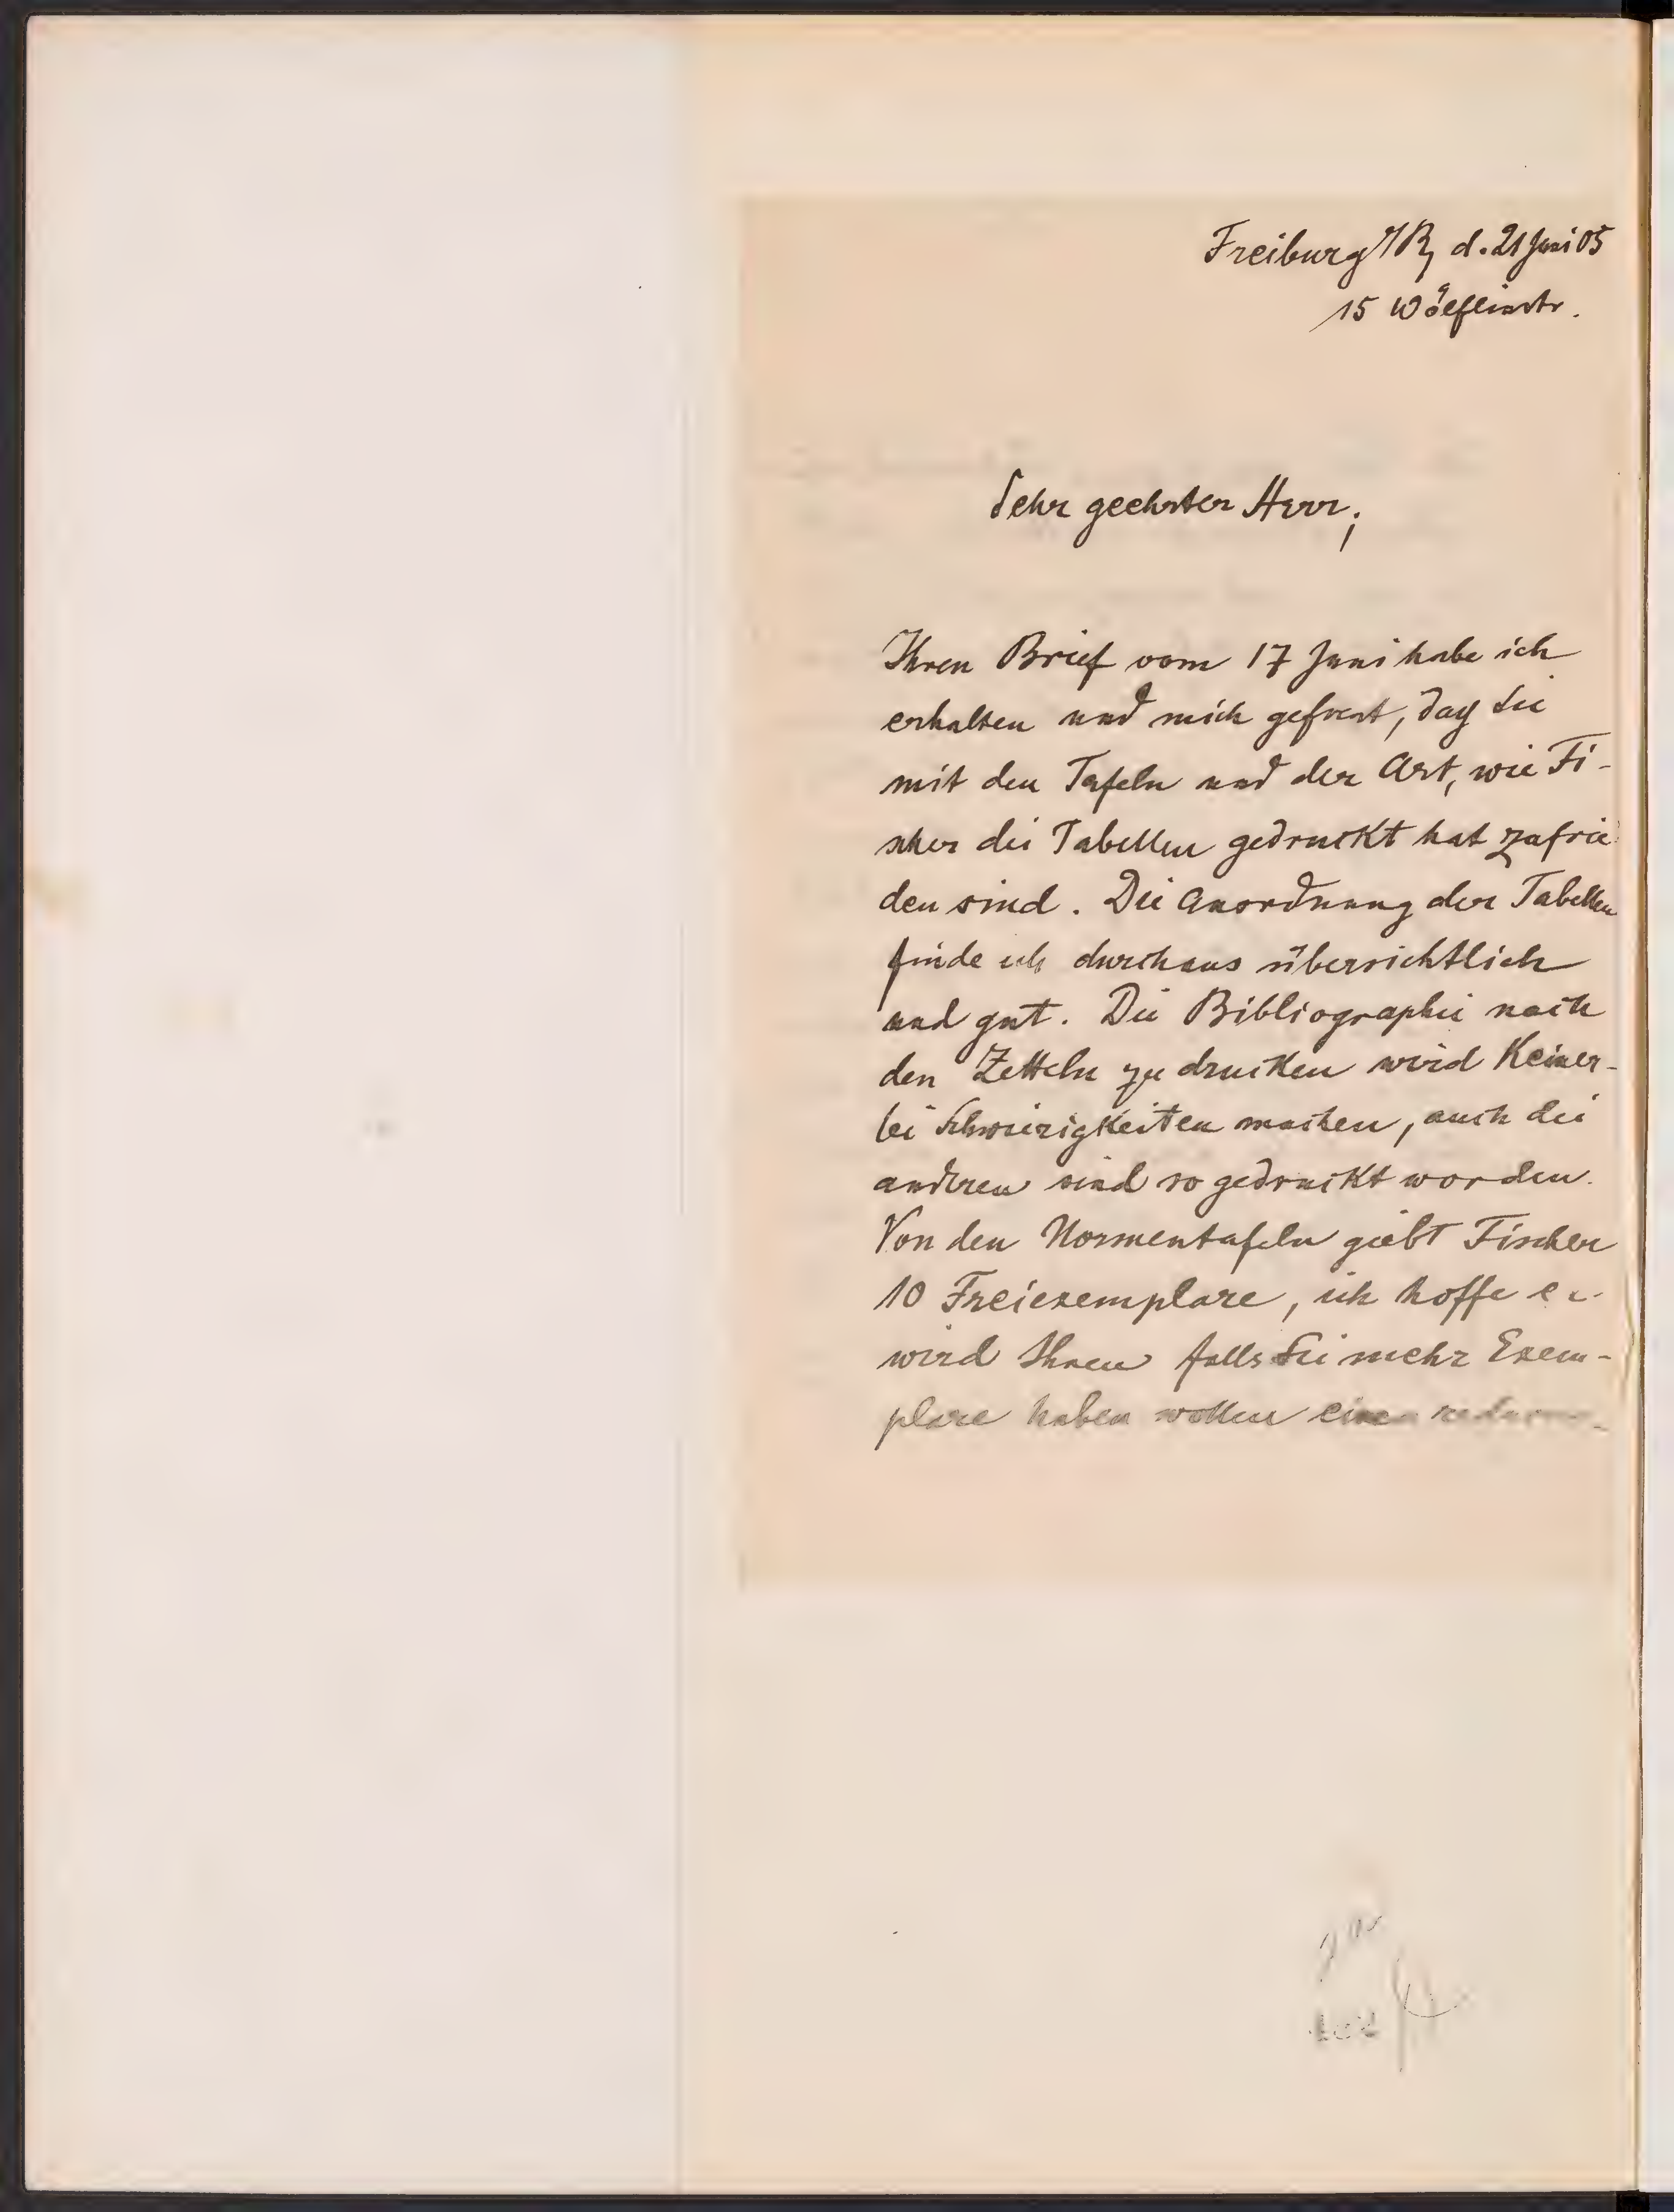 Freiburg i/B, d. 21 Juni 05
15 Wölflinstr.
Sehr geehrter Herr;
Ihren Brief vom 17 Juni habe ich
erhalten und mich gefreut, daß Sie
mit den Tafeln und der Art, wie Fi-
scher die Tabellen gedruckt hat zufrie
den sind. Die Anordnung der Tabellen
finde ich durchaus übersichtlich
und gut. Die Bibliographie nach
den Zetteln zu drucken wird Keiner-
lei Schwierigkeiten machen, auch die
anderen sind so gedruckt worden.
Von den Normentafeln giebt Fischer
10 Freiexemplare, ich hoffe er
wird Ihnen falls Sie mehr Exem-
plare haben wollen einen